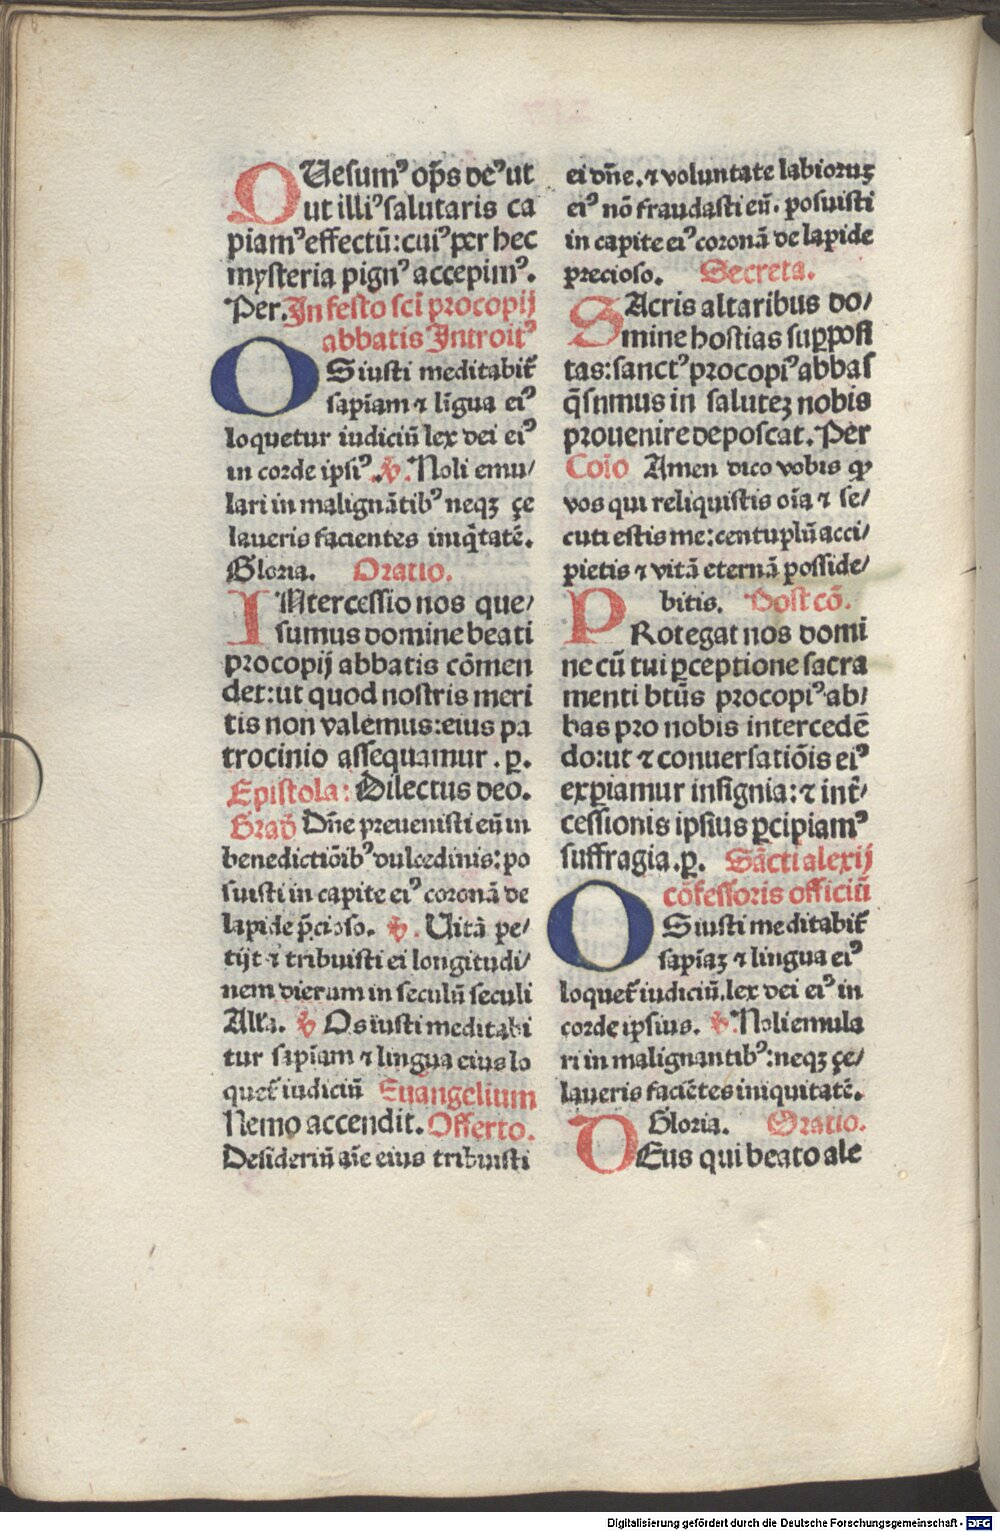 QUesumꝰ op̄s deꝰ ut
ut illiꝰ salutaris ca
piamꝰ effectū: cuiꝰ per hec
mysteria pignꝰ accepimꝰ.
Per. In festo sci procopij
abbatis Introitꝰ
OS iusti meditabit̄
sapiam ⁊ līgua eiꝰ
loquetur iudiciū lex dei eiꝰ
in corde ipsiꝰ. ℣. Noli emu/
lari in malignātibꝰ neqꝫ çe
laueris facientes iniq̄tatē.
Gloria. Oratio.
INtercessio nos que/
sumus domine beati
procopij abbatis cōmen
det: ut quod nostris meri
tis non valemus: eius pa
trocinio assequamur. p̱.
Epistola: Dilectus deo.
Grad̄ Dn̄e preuenisti eū in
benedictiōibꝰ dulcedinis: po
suisti in capite eiꝰ coronā de
lapide p̄cioso. ℣. Uitā pe/
tijt ⁊ tribuisti ei longitudi/
nem dierum in seculū seculi
Alla. ℣ Os iusti meditabi
tur sapiam ⁊ lingua eius lo
quet̄ iudiciū Euangelium
Nemo accendit. Offerto.
Desideriū aīe eius tribuisti
ei dn̄e. ⁊ voluntate labioruꝫ
eiꝰ nō fraudasti eū. posuisti
in capite eiꝰ coronā de lapide
precioso. Secreta.
SAcris altaribus do/
mine hostias sup̱posi
tas: sanctꝰ procopiꝰ abbas
q̄sumus in saluteꝫ nobis
prouenire deposcat. Per
Coīo Amen dico vobis ꝙ
vos qui reliquistis oīa ⁊ se/
cuti estis me: centuplū acci/
pietis ⁊ vitā eternā posside/
bitis. Post cō.
PRotegat nos domi
ne cū tui p̱ceptione sacra
menti btūs procopiꝰ ab/
bas pro nobis intercedē
do: ut ⁊ conuersatiōis eiꝰ
exp̱iamur insignia: ⁊ int̄/
cessionis ipsius p̱cipiamꝰ
suffragia. p̱. Sācti alexij
cōfessoris officiū
OS iusti meditabit̄
sapiaꝫ ⁊ lingua eiꝰ
loquet̄ iudiciū. lex dei eiꝰ in
corde ipsius. ℣. Noli emula
ri in malignantibꝰ: neqꝫ çe/
laueris faciētes iniquitatē.
Gloria. Oratio.
DEus qui beato ale
Digitalisierung gefördert durch die Deutsche Forschungsgemeinschaft - DFG